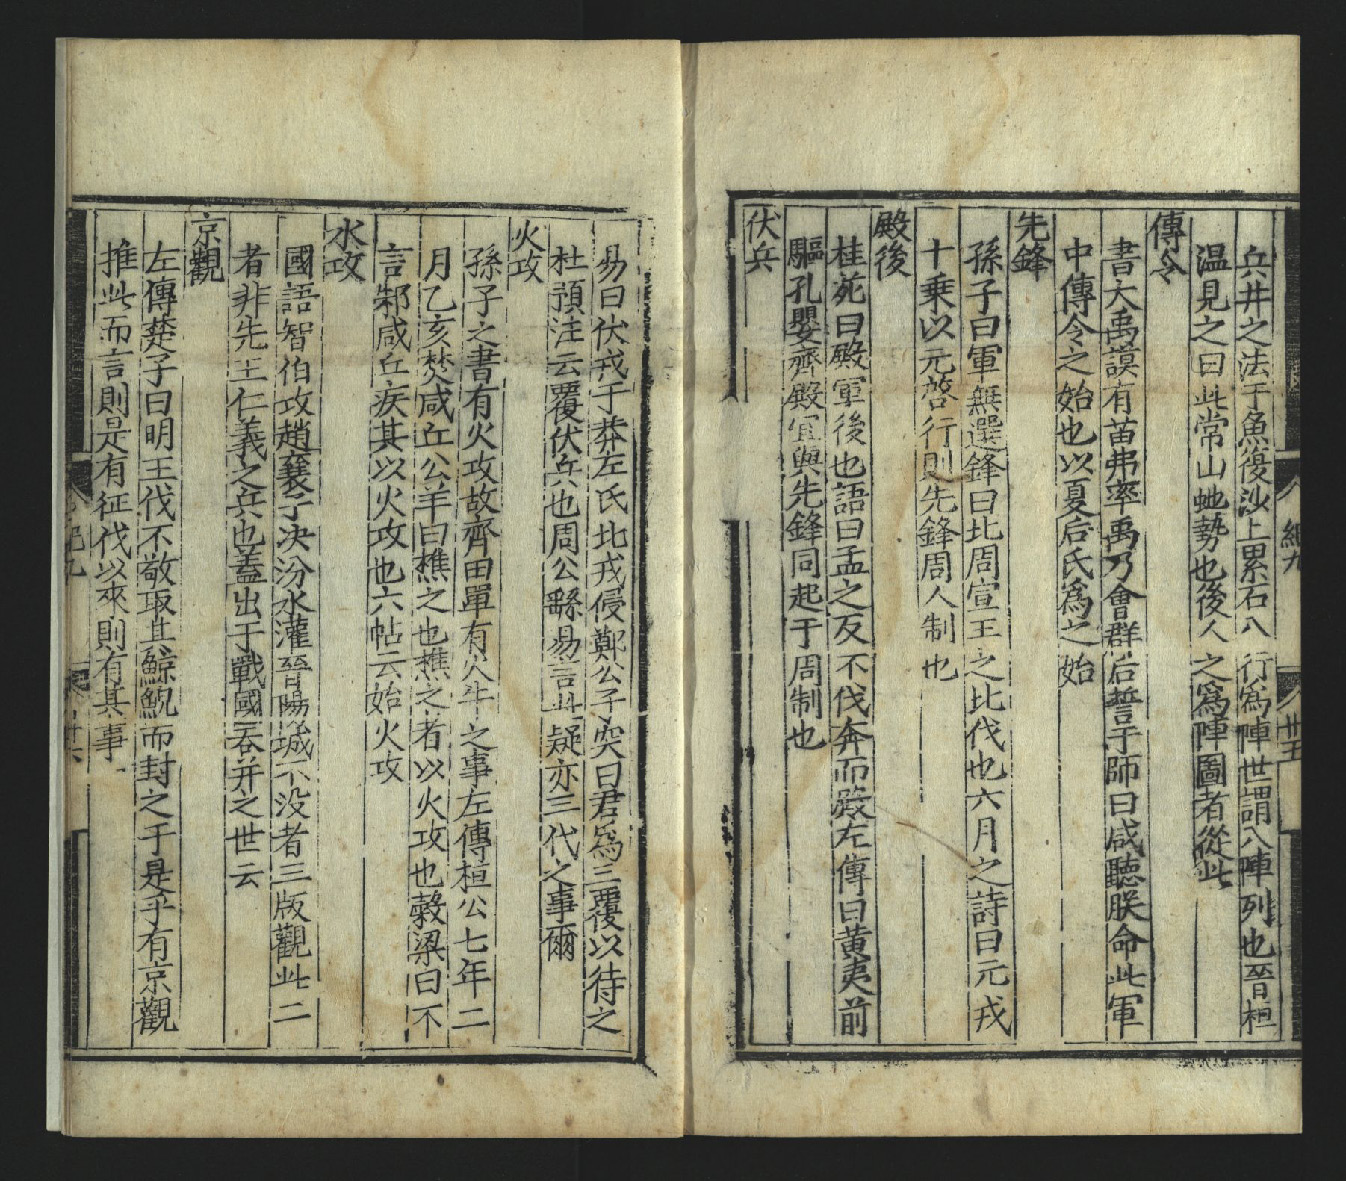 兵井之法于魚復沙上累石八行爲陣世謂八陣列也晉桓
温見之曰此常山虵勢也後人之爲陣圖者從此
傳令
書大禹謨有苗弗率禹乃會群后誓于師曰咸聽朕命此軍
中傳令之始也以夏后氏爲之始
先鋒
孫子曰軍無選鋒曰北周宣王之北伐也六月之詩曰元戎
十乗以元啓行則先鋒周人制也
殿後
桂苑曰殿軍後也語曰孟之反不伐奔而殿左傳曰黄夷前
驅孔嬰齊殿宜與先鋒同起于周制也
伏兵
易曰伏戎于莽左氏北戎侵鄭公子突曰君爲三覆以待之
杜預注云覆伏兵也周公繇易言此疑亦三代之事爾
火攻
孫子之書有火攻故齊田單有火牛之事左傳桓公七年二
月乙亥焚咸丘公羊曰樵之也樵之者以火攻也穀梁曰不
言邾咸丘疾其以火攻也六帖云始火攻
水攻
國語智伯攻趙襄子決汾水灌晉陽城不没者三版觀此二
者非先王仁義之兵也蓋出于戰國吞并之世云
京觀
左傳楚子曰明王伐不敬取其鯨鯢而封之于是乎有京觀
推此而言則是有征伐以來則有其事
紀九
卅五